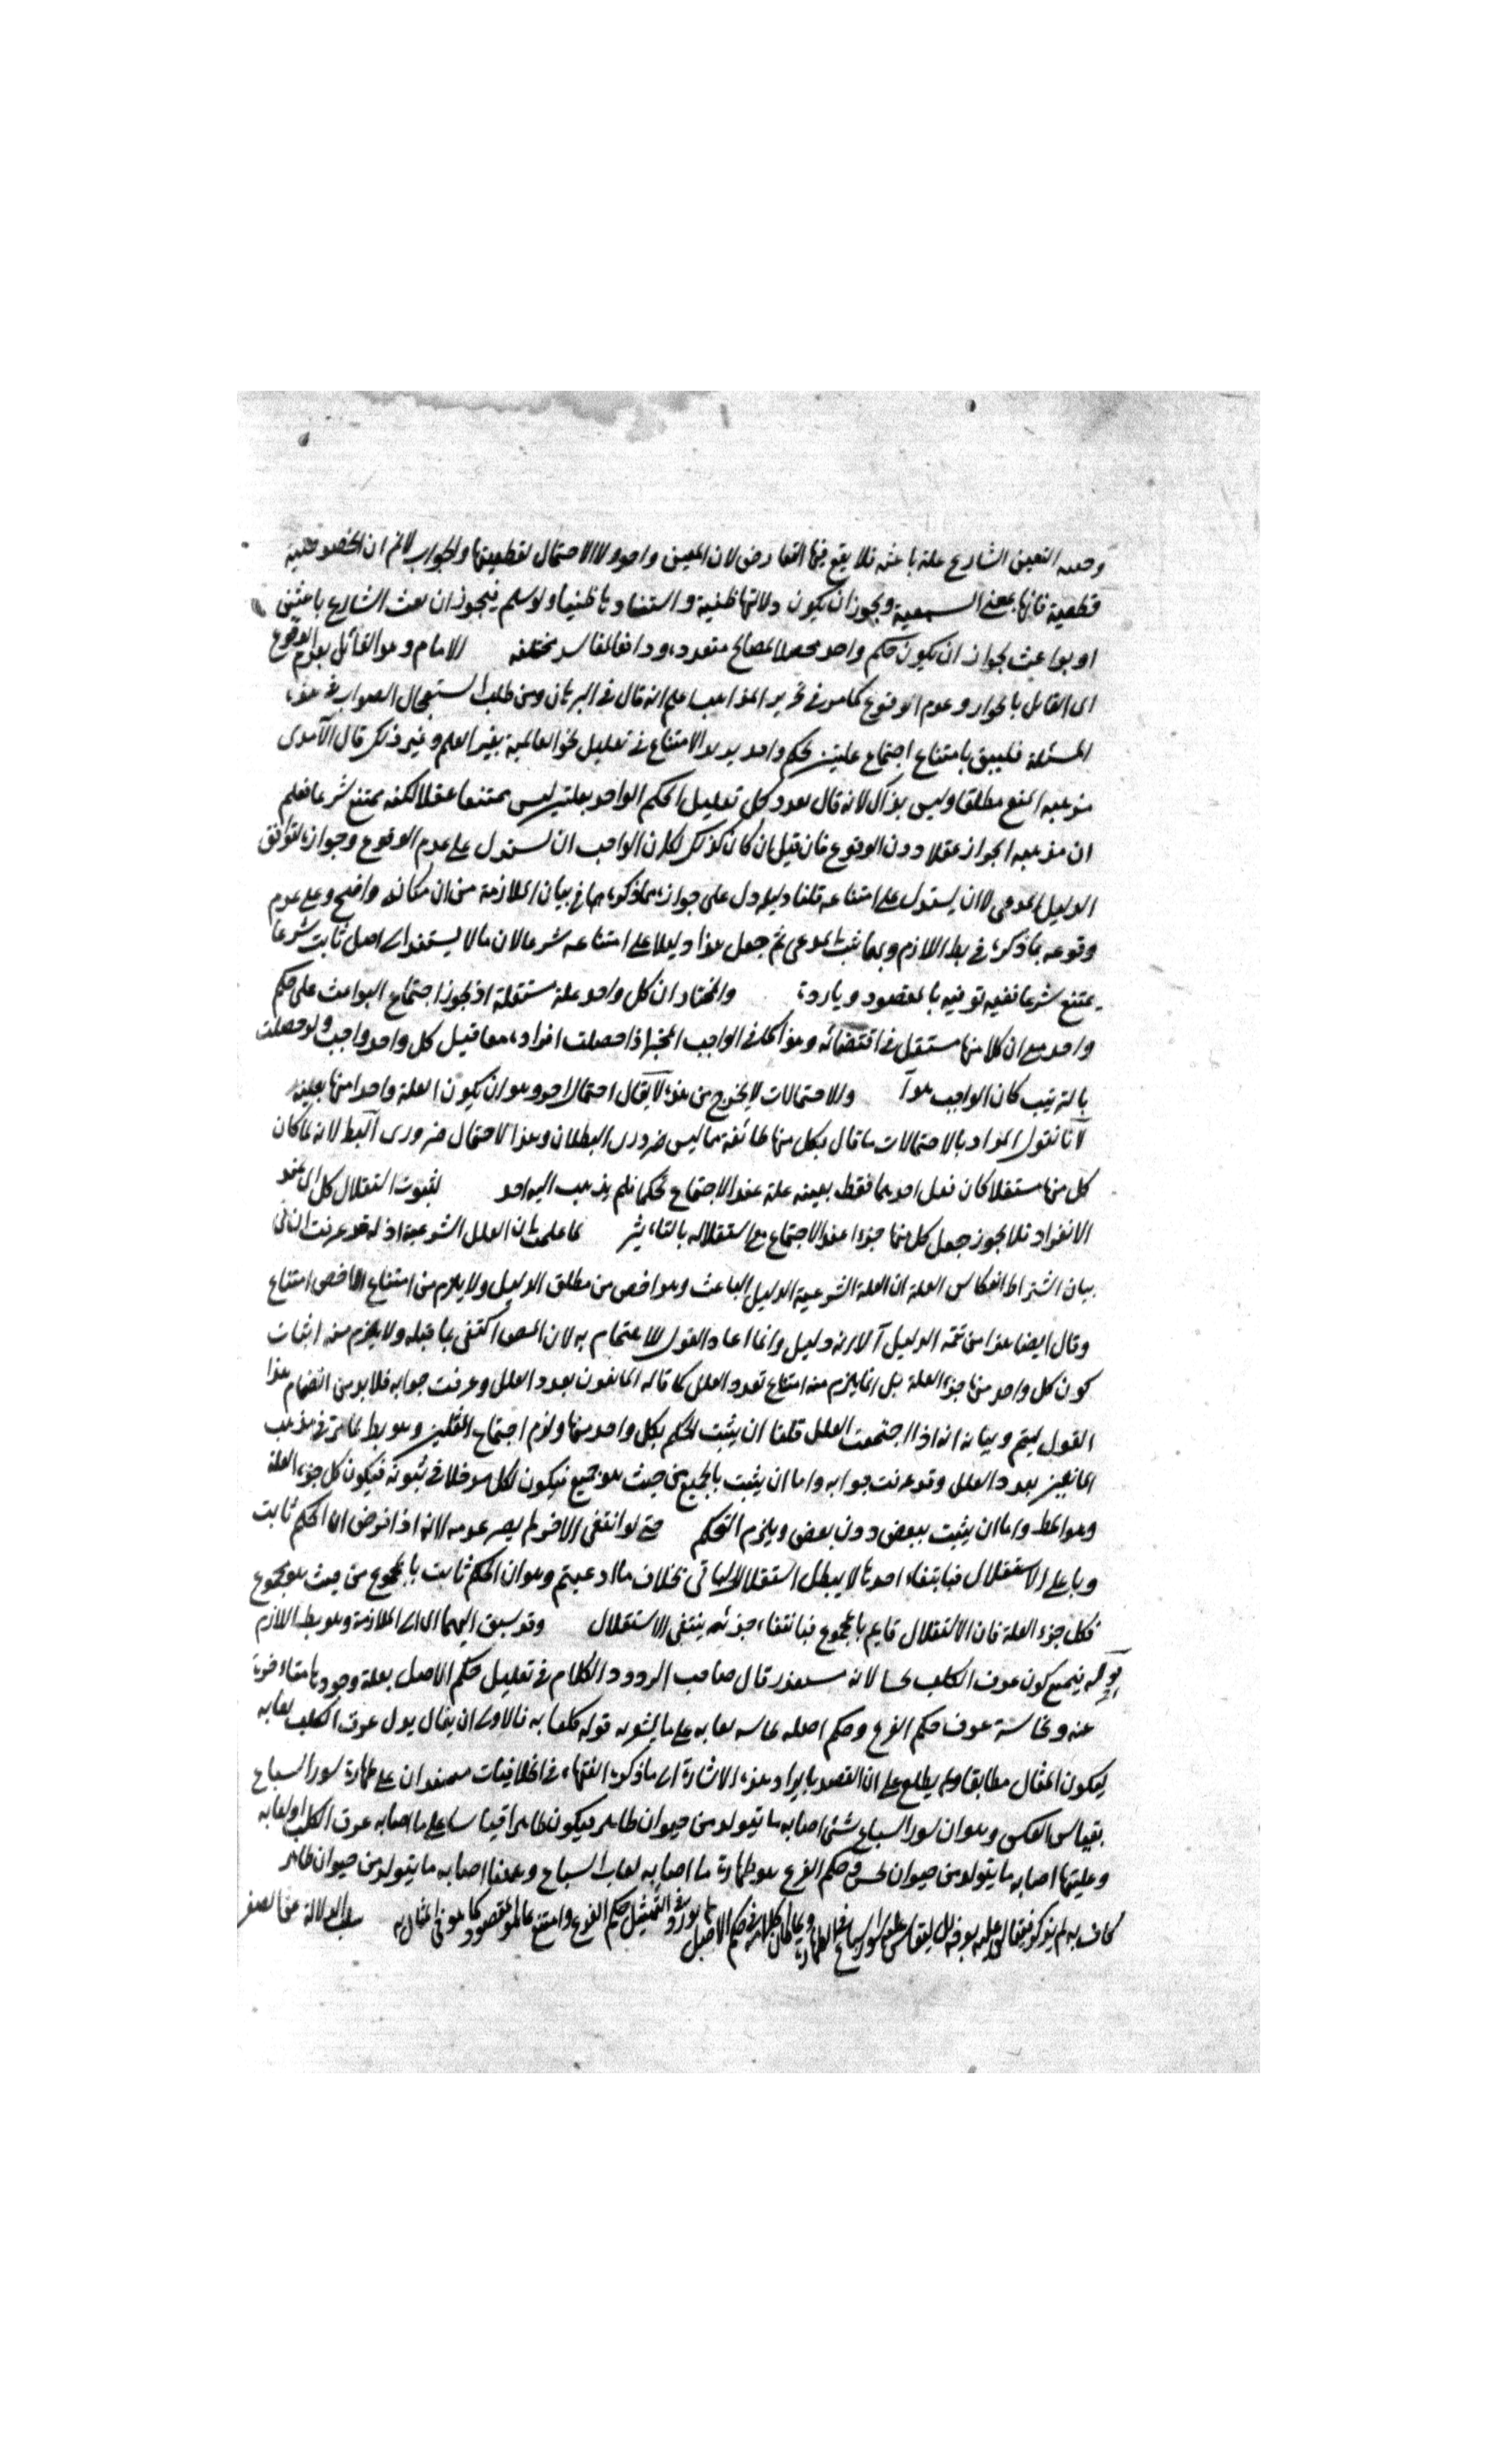 وجعله التعين الشارع علة باعثه فلا يقع فيها التعارض لان المعين واحد ولا الاحتمال لقطعيتها والجواب لانم ان المنصوصية
قطعية فانها بمعنى السمعية ويجوز ان يكون دلالتها ظنية واستنادها ظنيا ولو سلم فيجوز ان بعث الشارع باعثين
او بواعث لجواز ان يكون حكم واحد محصلا لمصالح متعددة ودافعا لمفاسد مختلفه الامام وهو القائل بعدم الوقوع
اى القائل بالجواز وعدم الوقوع كما مر فى تحرير المذاهب اعلم انه قال فى البرهان ومن طلب استعجال الصواب فى هذه
المسئلة فليبق بامتناع اجتماع علتين لحكم واحد الامتناع فى تعليل نحو العالمية بغير العلم وغير ذلك قال الآمدى
مذهبه المنع مطلقا وليس بذاك لانه قال بعدد كل تعليل الحكم الواحد بعلتين ليس ممتنعا عقلا لكنه ممتنع شرعا فعلم
ان مذهبه الجواز عقلا دون الوقوع فان قيل ان كان كذلك لكان الواجب ان يستدل على عدم الوقوع وجوازه لتوافق
الدليل المدعى لا ان يستدل على امتناعه قلنا دليله دل على جوازه بما ذكره فى بيان الملازمة من ان مكانه واضح وعلى عدم
وقوعه بما ذكره فى بط اللازم وبهما ثبت المدعى ثم جعل هذا دليلا على امتناعه شرعا لان ما لا يستند الى اصل ثابت شرعا
يمتنع شرعا ففيه توفية بالمقصود وزيادة والمختار ان كل واحد علة مستقلة اذ يجوز اجتماع البواعث على حكم
واحد مع ان كلا منها مستقل فى اقتضائه وهذا كما فى الواجب المخير اذا حصلت افراده معا قيل كل واحد واجب ولو حصلت
بالترتيب كان الواجب هو آ والاحتمالات لا يخرج من هذه لا يقال احتمال احد وهو ان يكون العلة واحدا منها بعينه
لانا نقول المراد بالاحتمالات ما قال بكل منها طائفة مما ليس ضرورى البطلان وهذا الاحتمال ضرورى البط لانه لما كان
كل منها مستقلا كان جعل احدهما فقط بعينه علة عند الاجتماع تحكما فلم يذهب اليه احد لثبوت استقلال كل اى عند
الانفراد فلا يجوز جعل كل منهما جزءا عند الاجتماع مع استقلاله بالتاثير لما علمت ان العلل الشرعية ادلة قد عرفت فى
بيان اشتراط انعكاس العلة ان العلة الشرعية الدليل الباعث وهو اخص من مطلق الدليل ولا يلزم من امتناع الاخص امتناع
وقال ايضا هذا من تتمه الدليل آلا انه دليل وانما اعاد القول للاهتمام به لان المص اكتفى بما قبله ولا يلزم منه اثبات
كون كل واحد منها جزء العلة بل انما يلزم منه امتناع تعدد العلل كما قاله المانعون بعدد العلل وعرفت جوابه فلا بد من انضمام هذا
القول ليتم وبيانه انه اذا اجتمعت العلل قلنا ان يثبت الحكم بكل واحد منها ولزم اجتماع المثلين وهو بط لما مر فى مذهب
المانعين بعدد العلل وقد عرفت جوابه واما ان يثبت بالجميع من حيث هو جميع فيكون لكل مدخلا فى ثبوته فيكون كل جزء العلة
وهو المط واما ان يثبت ببعض دون بعض ويلزم التحكم حتى لو انتفى الاخر لم يضر عدمه لانه اذا فرض ان الحكم ثابت
بها على الاستقلال فبانتفاء احدها لا يبطل استقلال الباقى بخلاف ما ادعيتم وهو ان الحكم ثابت بالمجموع من حيث هو مجموع
فكل جزء العلة فان الاستقلال قايم بالمجموع فبانتفاء جزئه ينتفى الاستقلال وقد سبق اليهما اى الى الملازمة وهو بط اللازم
قوله فيتنجس كون عرق الكلب نجسا لانه مستقذر قال صاحب الردود الكلام فى تعليل حكم الاصل بعلة وجودها متاخرة
عنه ونجاسة عرق حكم الفرع وحكم اصله نجاسه لعابه على ما يشعر به قوله كلعابه فالاولى ان يقال بدل عرق الكلب لعابه
ليكون المثال مطابقا ولم يطلع على ان القصد بايراد هذه الاشارة الى ما ذكره الفقهاء فى الخلافيات مستدلين على طهارة سور السباع
بقياس العكس وهو ان سور السباع شئ اصابه ما يتولد من حيوان طاهر فيكون طاهرا قياسا على ما اصابه عرق الكلب او لعابه
وعليتها اصابه ما يتولد من حيوان نجس وحكم الفرع هو طهارة ما اصابه لعاب السباع وعلتها اصابه ما يتولد من حيوان طاهر
فى حكم الاصل التمثيل بحكم الفرع وامتنع ما هو المقصود كما هو فى المثال سلب الدلالة من الصغر